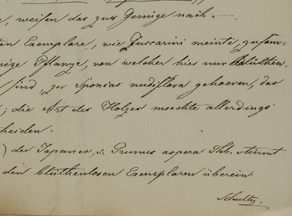 , weisen das zur Genüge nach.
ten Exemplare, wie Zuccarini meinte, zusam-
nige Pflanze, von welcher hier nur Blüthen
sind zu Spondias nudiflora gehoeren, das
; die Art des Holzes moechte allerdings
heiden.
) der Japaner, s. Prunus aspera Thb. stimmt
den blüthenlosen Exemplaren überein
Schultes